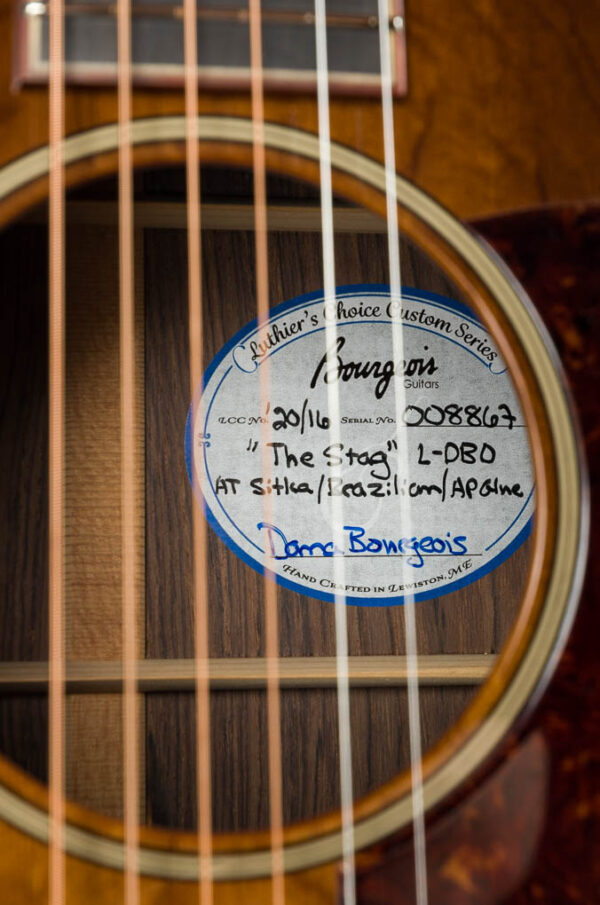 Luthier's Choice Custom Series
Bourgeois
Guitars
LCC No. 20/16 Serial No. 008867
"The Stag" L-DBO
AT Sitka/Brazilian/
Dana Bourgeois
Hand Crafted in Lewiston, ME